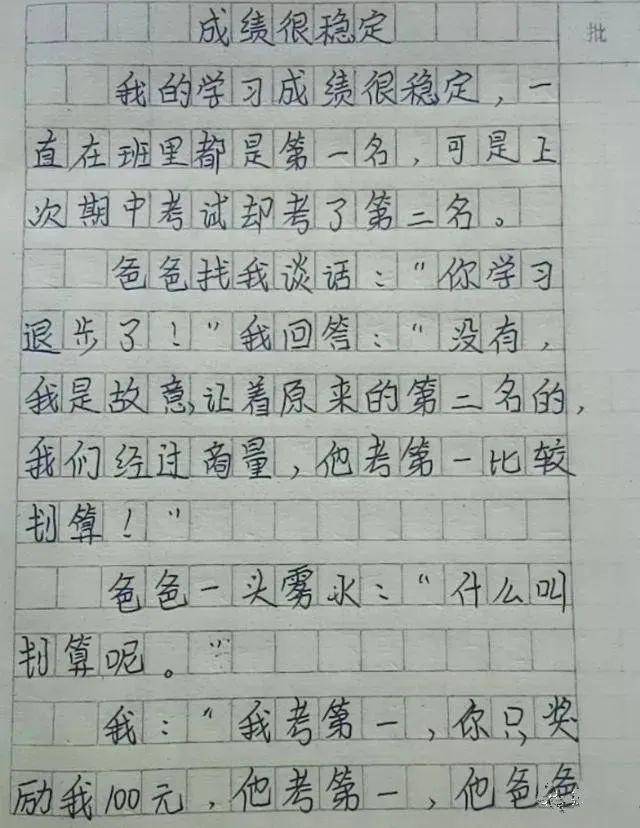 批
成绩很稳定
我的学习成绩很稳定，一
直在班里都是第一名，可是上
次期中考试却考了第二名。
爸爸找我谈话：“你学习
退步了！”我回答：“没有，
我是故意,让着原来的第二名的，
我们经过商量，他考第一比较
划算！”
爸爸一头雾水：“什么叫
划算呢。”
我：“我考第一，你只奖
励我100元，他考第一，他爸爸